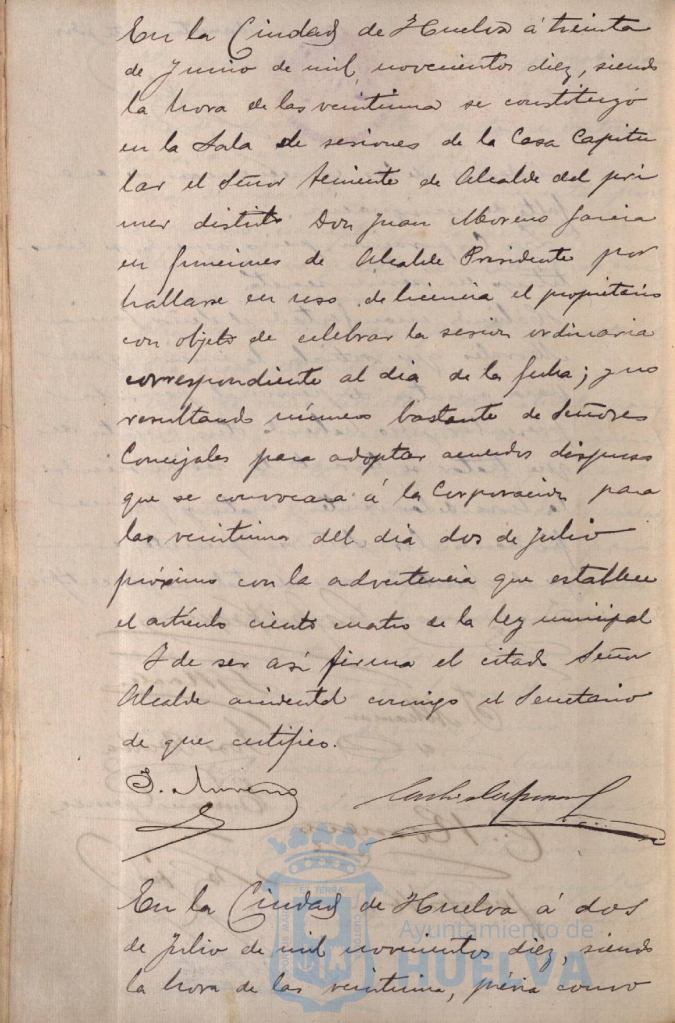 En la Ciudad de Huelva á treinta
de Junio de mil novecientos diez, siendo
la hora de las veintiuna se constituyó
en la Sala de sesiones de la Casa Capitu
lar el Señor Teniente de Alcalde del pri
mer distrito Don Juan Moreno García
en funciones de Alcalde Presidente por
hallarse en uso de licencia el propietario
con objeto de celebrar la sesion ordinaria
correspondiente al dia de la fecha; y no
resultando número bastante de Señores
Concejales para adoptar acuerdos dispuso
que se convocara á la Corporación para
las veintiuna del dia dos de Julio
próximo con la advertencia que establece
el artículo ciento cuatro de la ley municipal
Y de ser asi firma el citado Señor
Alcalde accidental conmigo el Secretario
de que certifico.
J. Moreno
En la Ciudad de Huelva á dos
de Julio de mil novecientos diez, siendo
la hora de las veintiuna, prévia convo
Ayuntamiento de
HUELVA